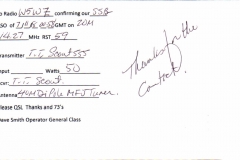 o Radio W5WZ confirming our SSB
SO of at GMT on 20M
14.27 MHz RST 59
ransmitter T.T. Scout 555
nput Watts 50
cvr: T.T. Scout
Antenna 40M DiPole MFJ Tuner
lease QSL Thanks and 73's
Dave Smith Operator General Class
Thanks for the
Contact.